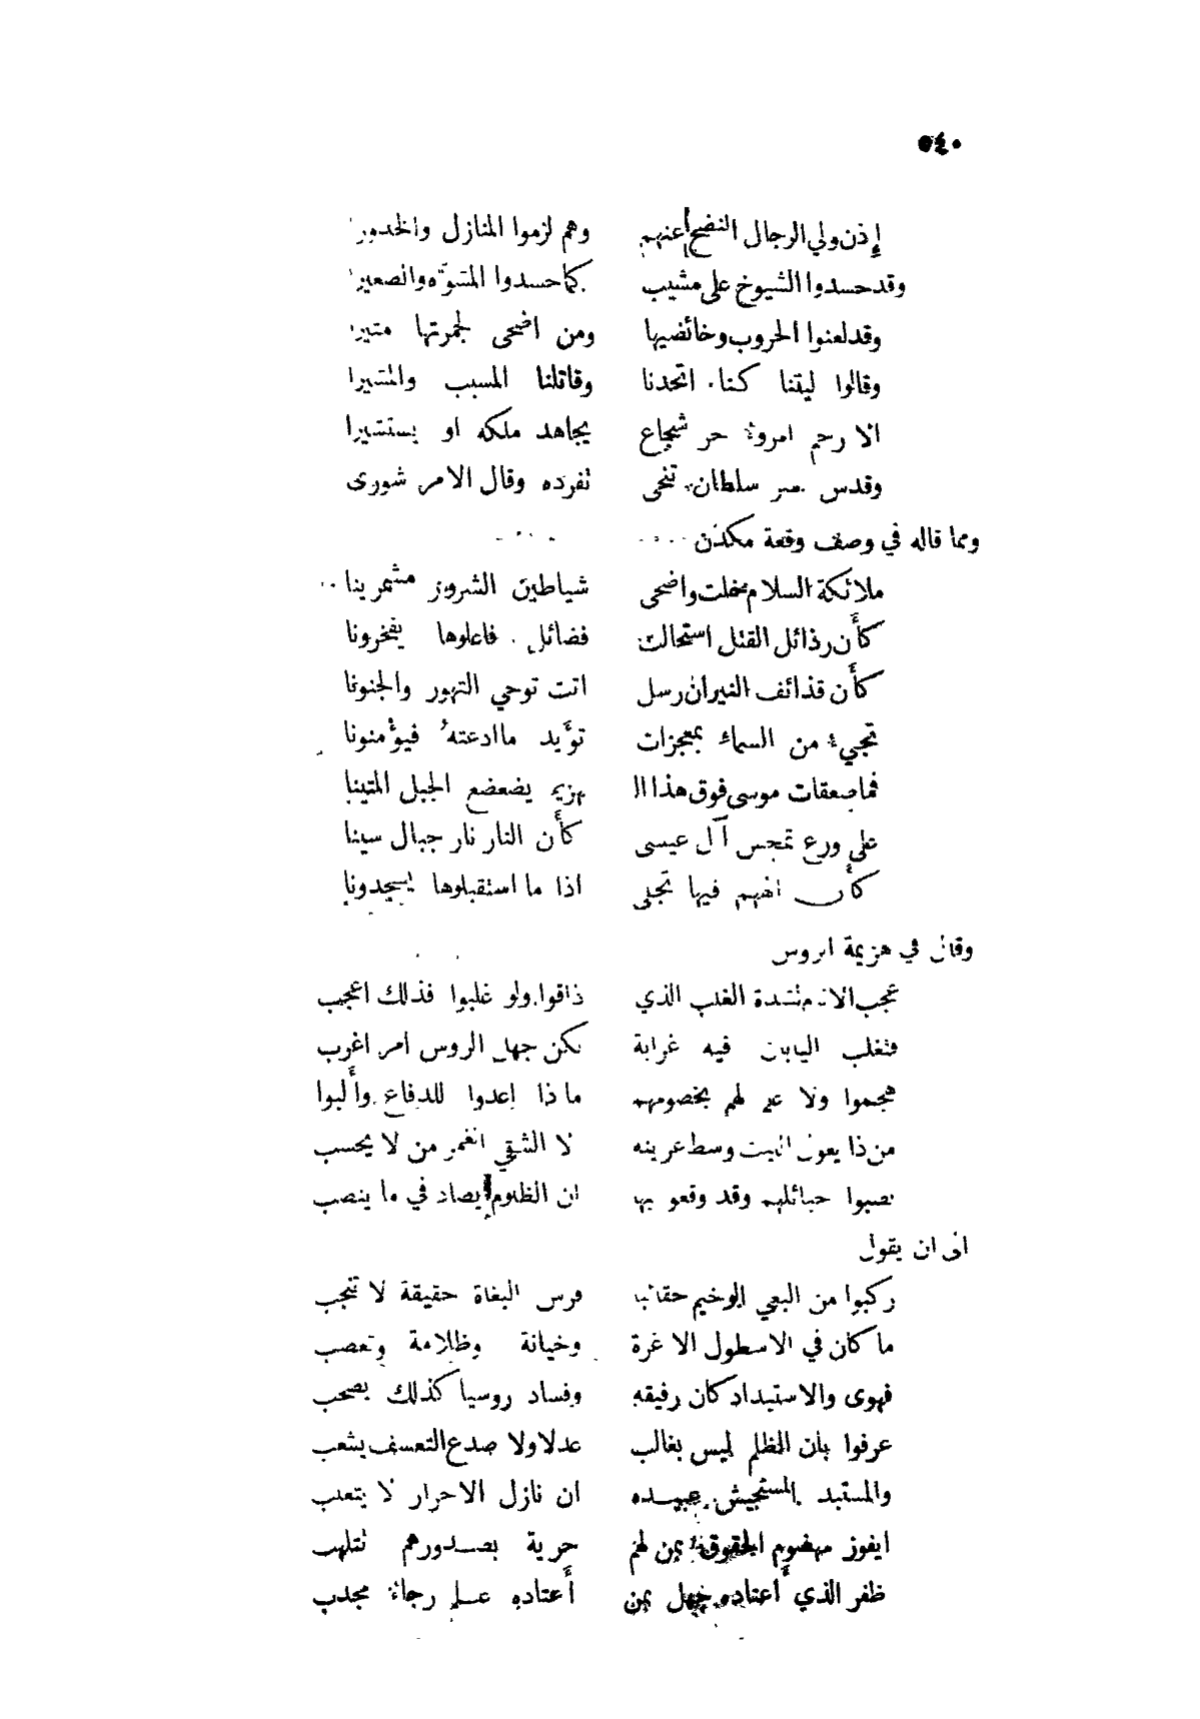 ٥٤٠
إذن ولي الرجال النضج عنهم وهم لزموا المنازل والخدورا
وقد حسدوا الشيوخ على مشيب كما حسدوا المشوّه والصغيرا
وقد لعنوا الحروب وخائضيها ومن اضحى لجمرتها مثيرا
وقالوا ليتنا كنا اتحدنا وقاتلنا المسبب والمشيرا
الا رحم امروء حر شجاع يجاهد ملكه او يستشيرا
وقدس سلطان تنحى تفرده وقال الامر شورى
ومما قاله في وصف وقعة مكدن
ملائكة السلام مخلت واضحى شياطين الشرور مشمرينا
كأن رذائل القتل استحالت فضائل فاعلوها يفخرونا
كأن قذائف النيران رسل اتت توحي التهور والجنونا
تجيء من السماء بمعجزات تؤيد ما ادعته فيؤمنونا
فما صعقات موسى فوق هذا ال يهزيم يضعضع الجبل المتينا
على ورع تمجس آل عيسى كأن النار نار جبال سينا
كأن الههم فيها تجلى اذا ما استقبلوها يسجدونا
وقال في هزيمة الروس
عجب الانام لشدة الغلب الذي ذاقوا ولو غلبوا فذلك اعجب
فتغلب اليابان فيه غرابة لكن جهل الروس امر اغرب
هجموا ولا علم لهم بخصومهم ماذا اعدوا للدفاع وألبوا
من ذا يعول الليث وسط عرينه الا الشقي الغمر من لا يحسب
نصبوا حبائلهم وقد وقعو بها ان الظلوم يصاد في ما ينصب
الى ان يقول
ركبوا من البغي الوخيم حقائبا فرس البغاة حقيقة لا تنجب
ما كان في الاسطول الا غرة وخيانة وظلامة وتعصب
فهوى والاستبداد كان رفيقه وفساد روسيا كذلك يصحب
عرفوا بان الظلم ليس بغالب عدلا ولا صدع التعسف يشعب
والمستبد المستجيش عبيده ان نازل الاحرار لا يتغلب
ايفوز مهضوم الحقوق بمن لهم حرية بصدورهم تتلهب
ظفر الذي أعتاده جهل بمن أعتاده علم رجاء مجدب